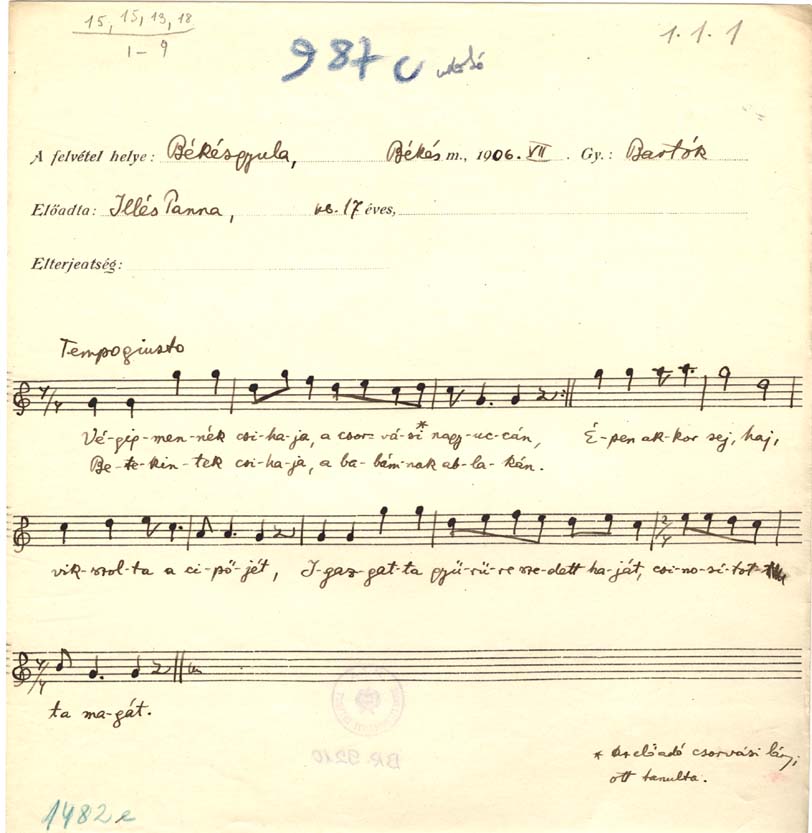 15, 15, 13, 18
1-9
1.1.1
987 c utolsó
A felvétel helye: Békésgyula, Békés m., 1906. VII. Gy.: Bartók
Előadta: Illés Panna, kb. 17 éves,
Elterjeatség:
Tempo giusto
Vé-gig-men-nék csi-ha-ja, a csor-vá-si* nagy-uc-cán, É-pen ak-kor sej, haj,
Be-te-kin-tek csi-ha-ja, a ba-bám-nak ab-la-kán.
vik-szol-ta a ci-pő-jét, I-gaz-gat-ta gyű-rű-re sze-dett ha-ját, csi-no-sí-tot-
ta ma-gát.
BR 9210
* Az előadó csorvási lány,
ott tanulta.
1482 e